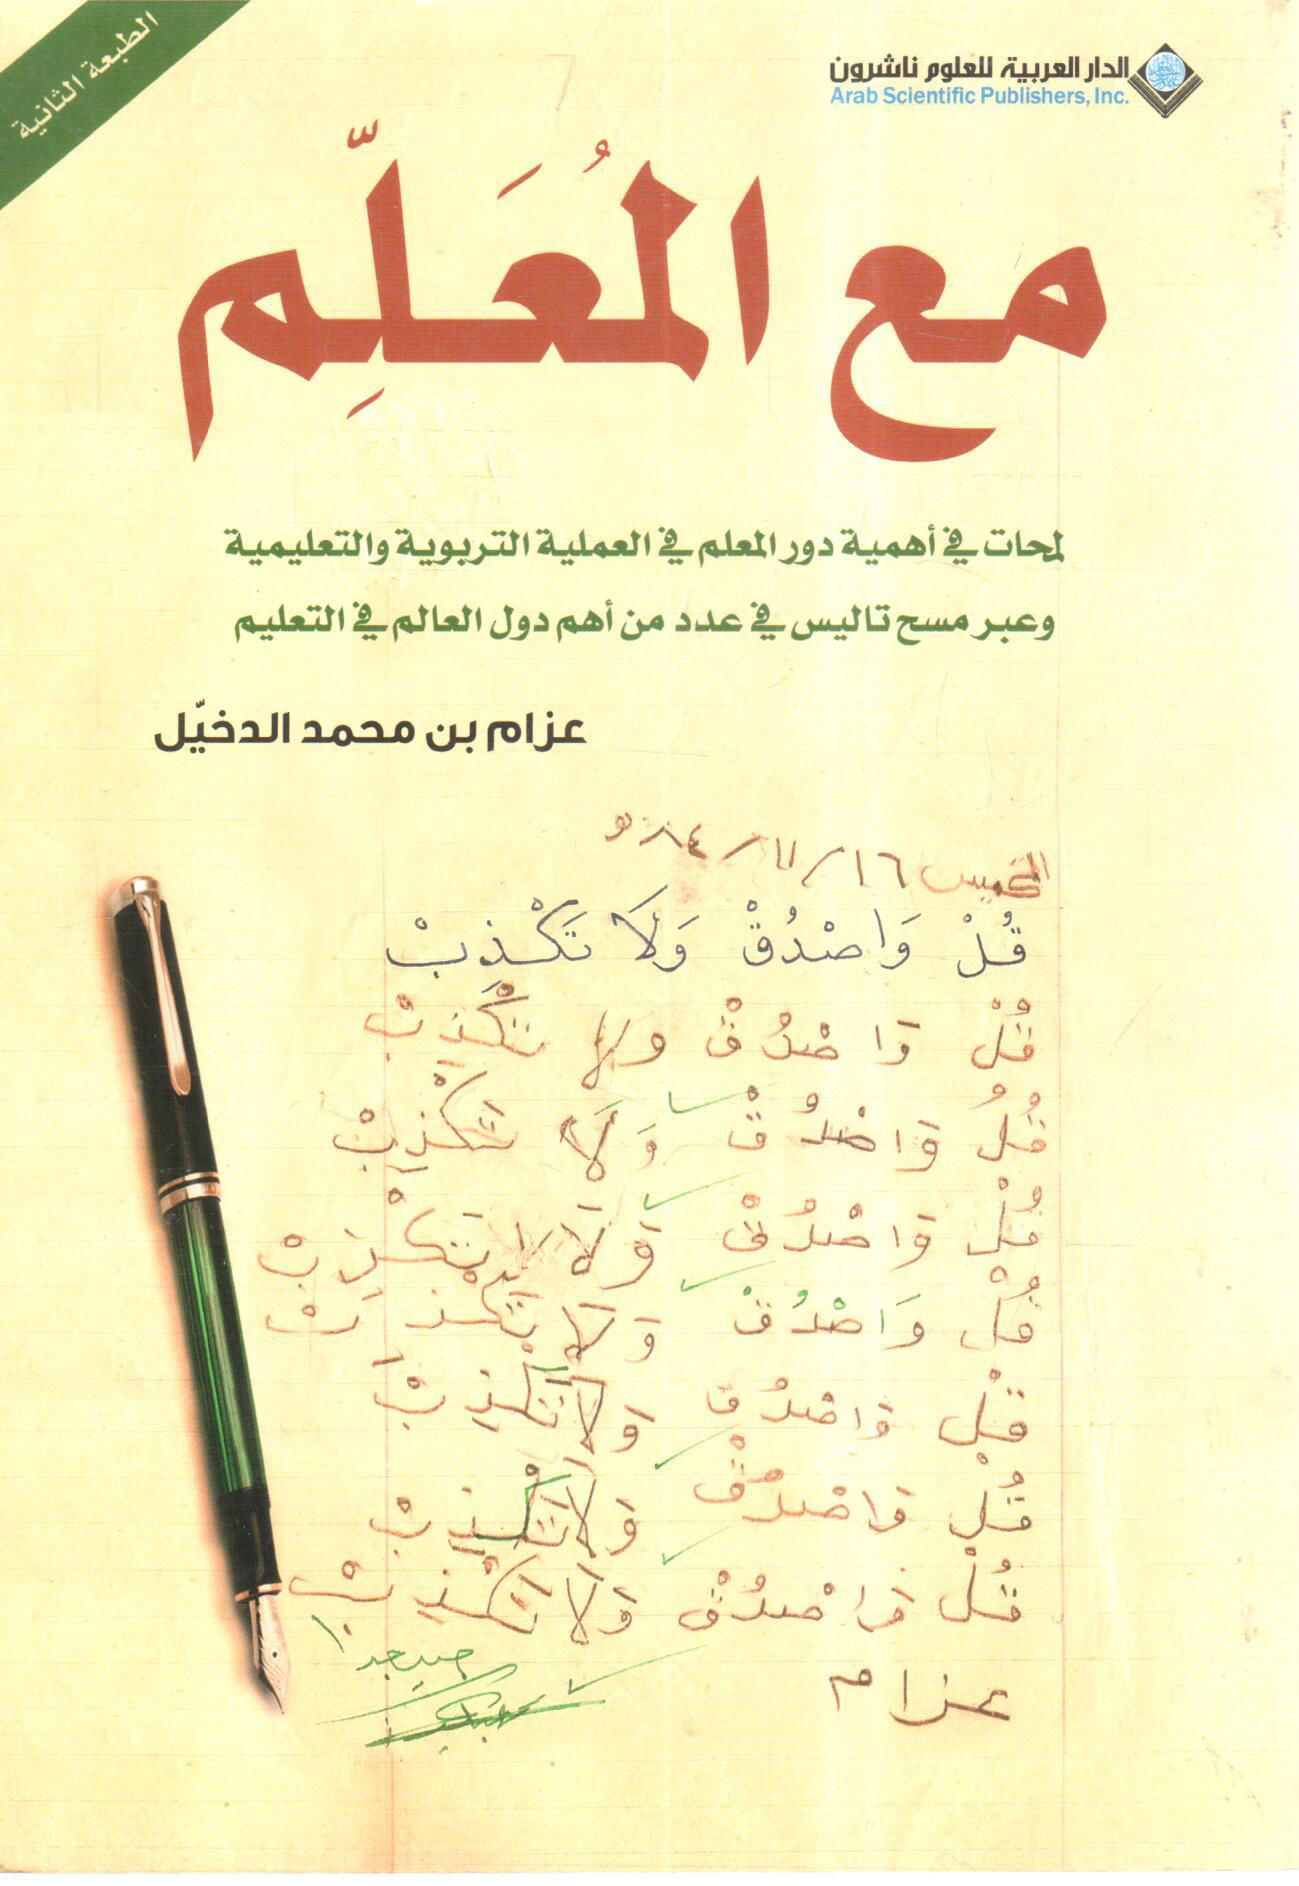 الطبعة الثانية
الدار العربية للعلوم ناشرون
Arab Scientific Publishers, Inc.
مع المُعَلِّم
لمحات في أهمية دور المعلم في العملية التربوية والتعليمية
وعبر مسح تاليس في عدد من أهم دول العالم في التعليم
عزام بن محمد الدخيّل
الخميس ١٦/
قُلْ وَاصْدُقْ وَلَا تَكْذِبْ
قُلْ وَا صْدُقْ ولا تَكْذِبْ
قُلُ وَاصْدُقْ وَلَا تَكْذِبْ
قُلْ وَاصْدُقْ وَلَا لا تَكْذِبْ
قُلْ وَاصْدُقْ وَلَا تَكْذ بْ
قْل وَاصْدُق وَلَا تَكْذِبْ
قُلْ وَاصْدُقْ وَلَا تَكْذِبْ
قُلْ وَاصْدُقْ وَلَا تَكْذِبْ
عزام
جيد جدا